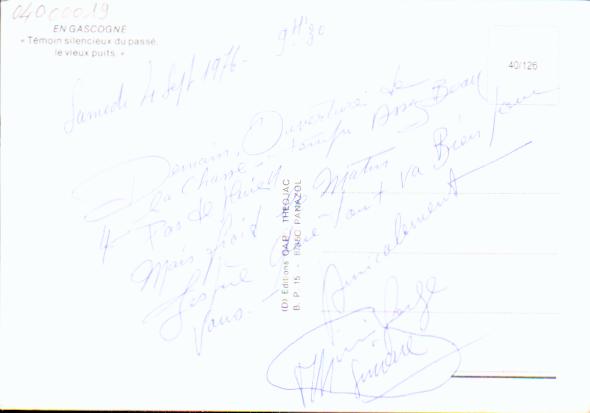 04000019
EN GASCOGNE
« Témoin silencieux du passé,
le vieux puits. »
40/126
Samedi 4 Sept 1976 - 9H30
Demain, Ouverture de
la Chasse - temps Assez Beau
Pas de
Mais froid le Matin
J'espère que tout va Bien pour
Vous -
Amicalement
Simone
(D) Editions CAP - THEOJAC
B. P. 15 -  PANAZOL